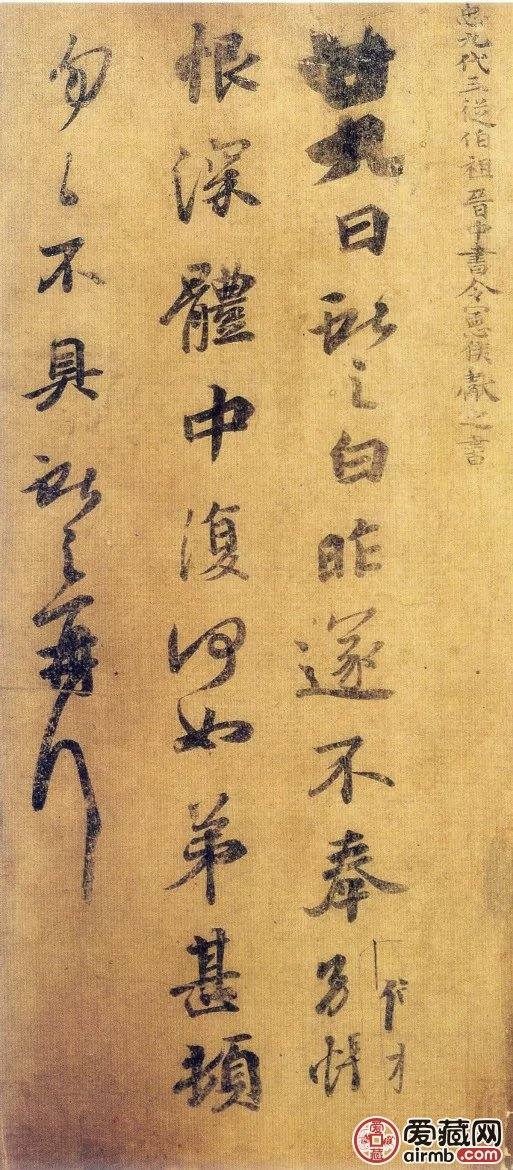 九代三從伯祖晉中書令憲侯獻之書
廿九日獻之白昨遂不奉別悵
恨深體中復何如弟甚頓
勿々不具獻之再拜
爱藏网
airmb.com